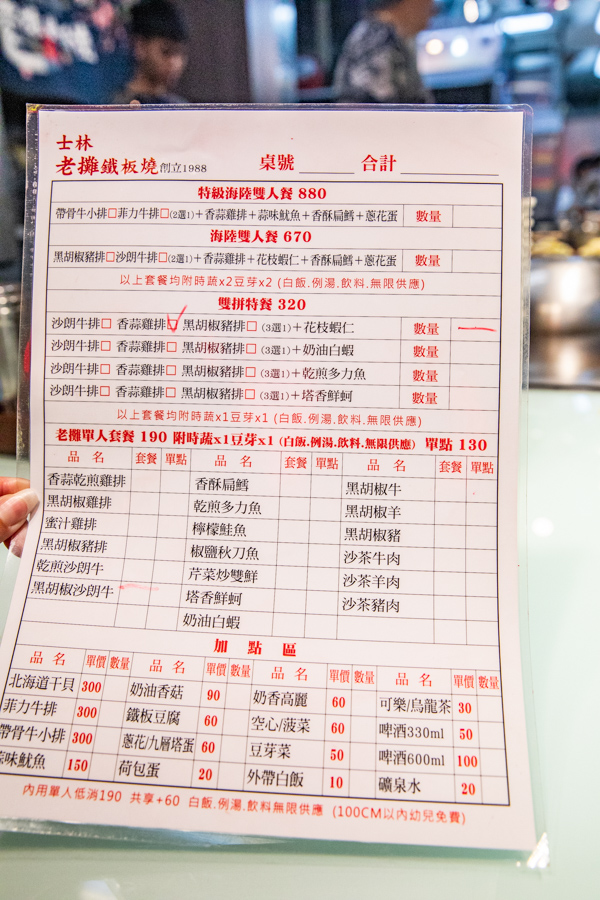 士林
老攤鐵板燒創立1988 桌號 合計
特級海陸雙人餐 880
帶骨牛小排□菲力牛排□(2選1)+香蒜雞排+蒜味魷魚+香酥扁鱈+蔥花蛋 數量
海陸雙人餐 670
黑胡椒豬排□沙朗牛排□(2選1)+香蒜雞排+花枝蝦仁+香酥扁鱈+蔥花蛋 數量
以上套餐均附時蔬x2豆芽x2 (白飯.例湯.飲料.無限供應)
雙拼特餐 320
沙朗牛排□ 香蒜雞排□ 黑胡椒豬排□ (3選1)+花枝蝦仁 數量
沙朗牛排□ 香蒜雞排□ 黑胡椒豬排□ (3選1)+奶油白蝦 數量
沙朗牛排□ 香蒜雞排□ 黑胡椒豬排□ (3選1)+乾煎多力魚 數量
沙朗牛排□ 香蒜雞排□ 黑胡椒豬排□ (3選1)+塔香鮮蚵 數量
以上套餐均附時蔬x1豆芽x1 (白飯.例湯.飲料.無限供應)
老攤單人套餐 190 附時蔬x1豆芽x1 (白飯.例湯.飲料.無限供應) 單點 130
品名 套餐 單點 品名 套餐 單點 品名 套餐 單點
香蒜乾煎雞排 香酥扁鱈 黑胡椒牛
黑胡椒雞排 乾煎多力魚 黑胡椒羊
蜜汁雞排 檸檬鮭魚 黑胡椒豬
黑胡椒豬排 椒鹽秋刀魚 沙茶牛肉
乾煎沙朗牛 芹菜炒雙鮮 沙茶羊肉
黑胡椒沙朗牛 塔香鮮蚵 沙茶豬肉
奶油白蝦
加點區
品名 單價 數量 品名 單價 數量 品名 單價 數量 品名 單價 數量
北海道干貝 300 奶油香菇 90 奶香高麗 60 可樂/烏龍茶 30
菲力牛排 300 鐵板豆腐 60 空心/菠菜 60 啤酒330ml 50
帶骨牛小排 300 蔥花/九層塔蛋 60 豆芽菜 50 啤酒600ml 100
蒜味魷魚 150 荷包蛋 20 外帶白飯 10 礦泉水 20
內用單人低消190 共享+60 白飯.例湯.飲料無限供應 (100CM以內幼兒免費)